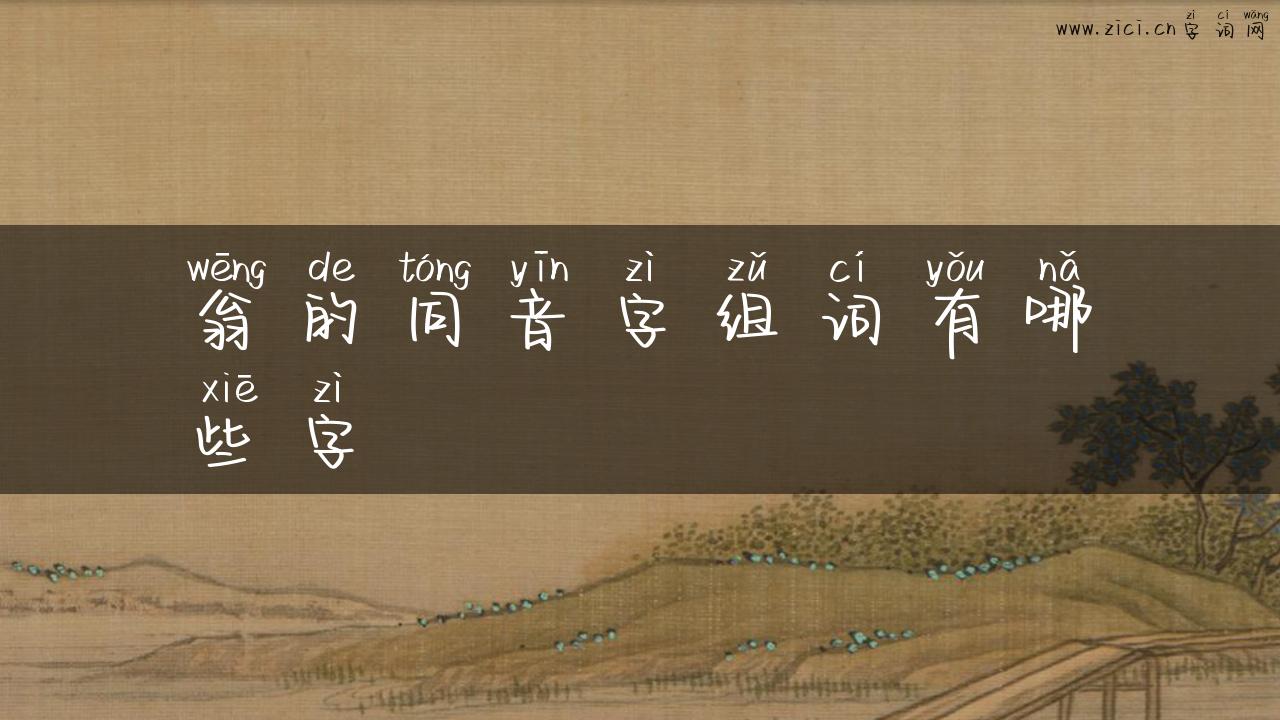 zì cí wǎng
www.zici.cn字词网
wēng de tóng yīn zì zǔ cí yǒu nǎ
翁的同音字组词有哪
xiē zì
些字